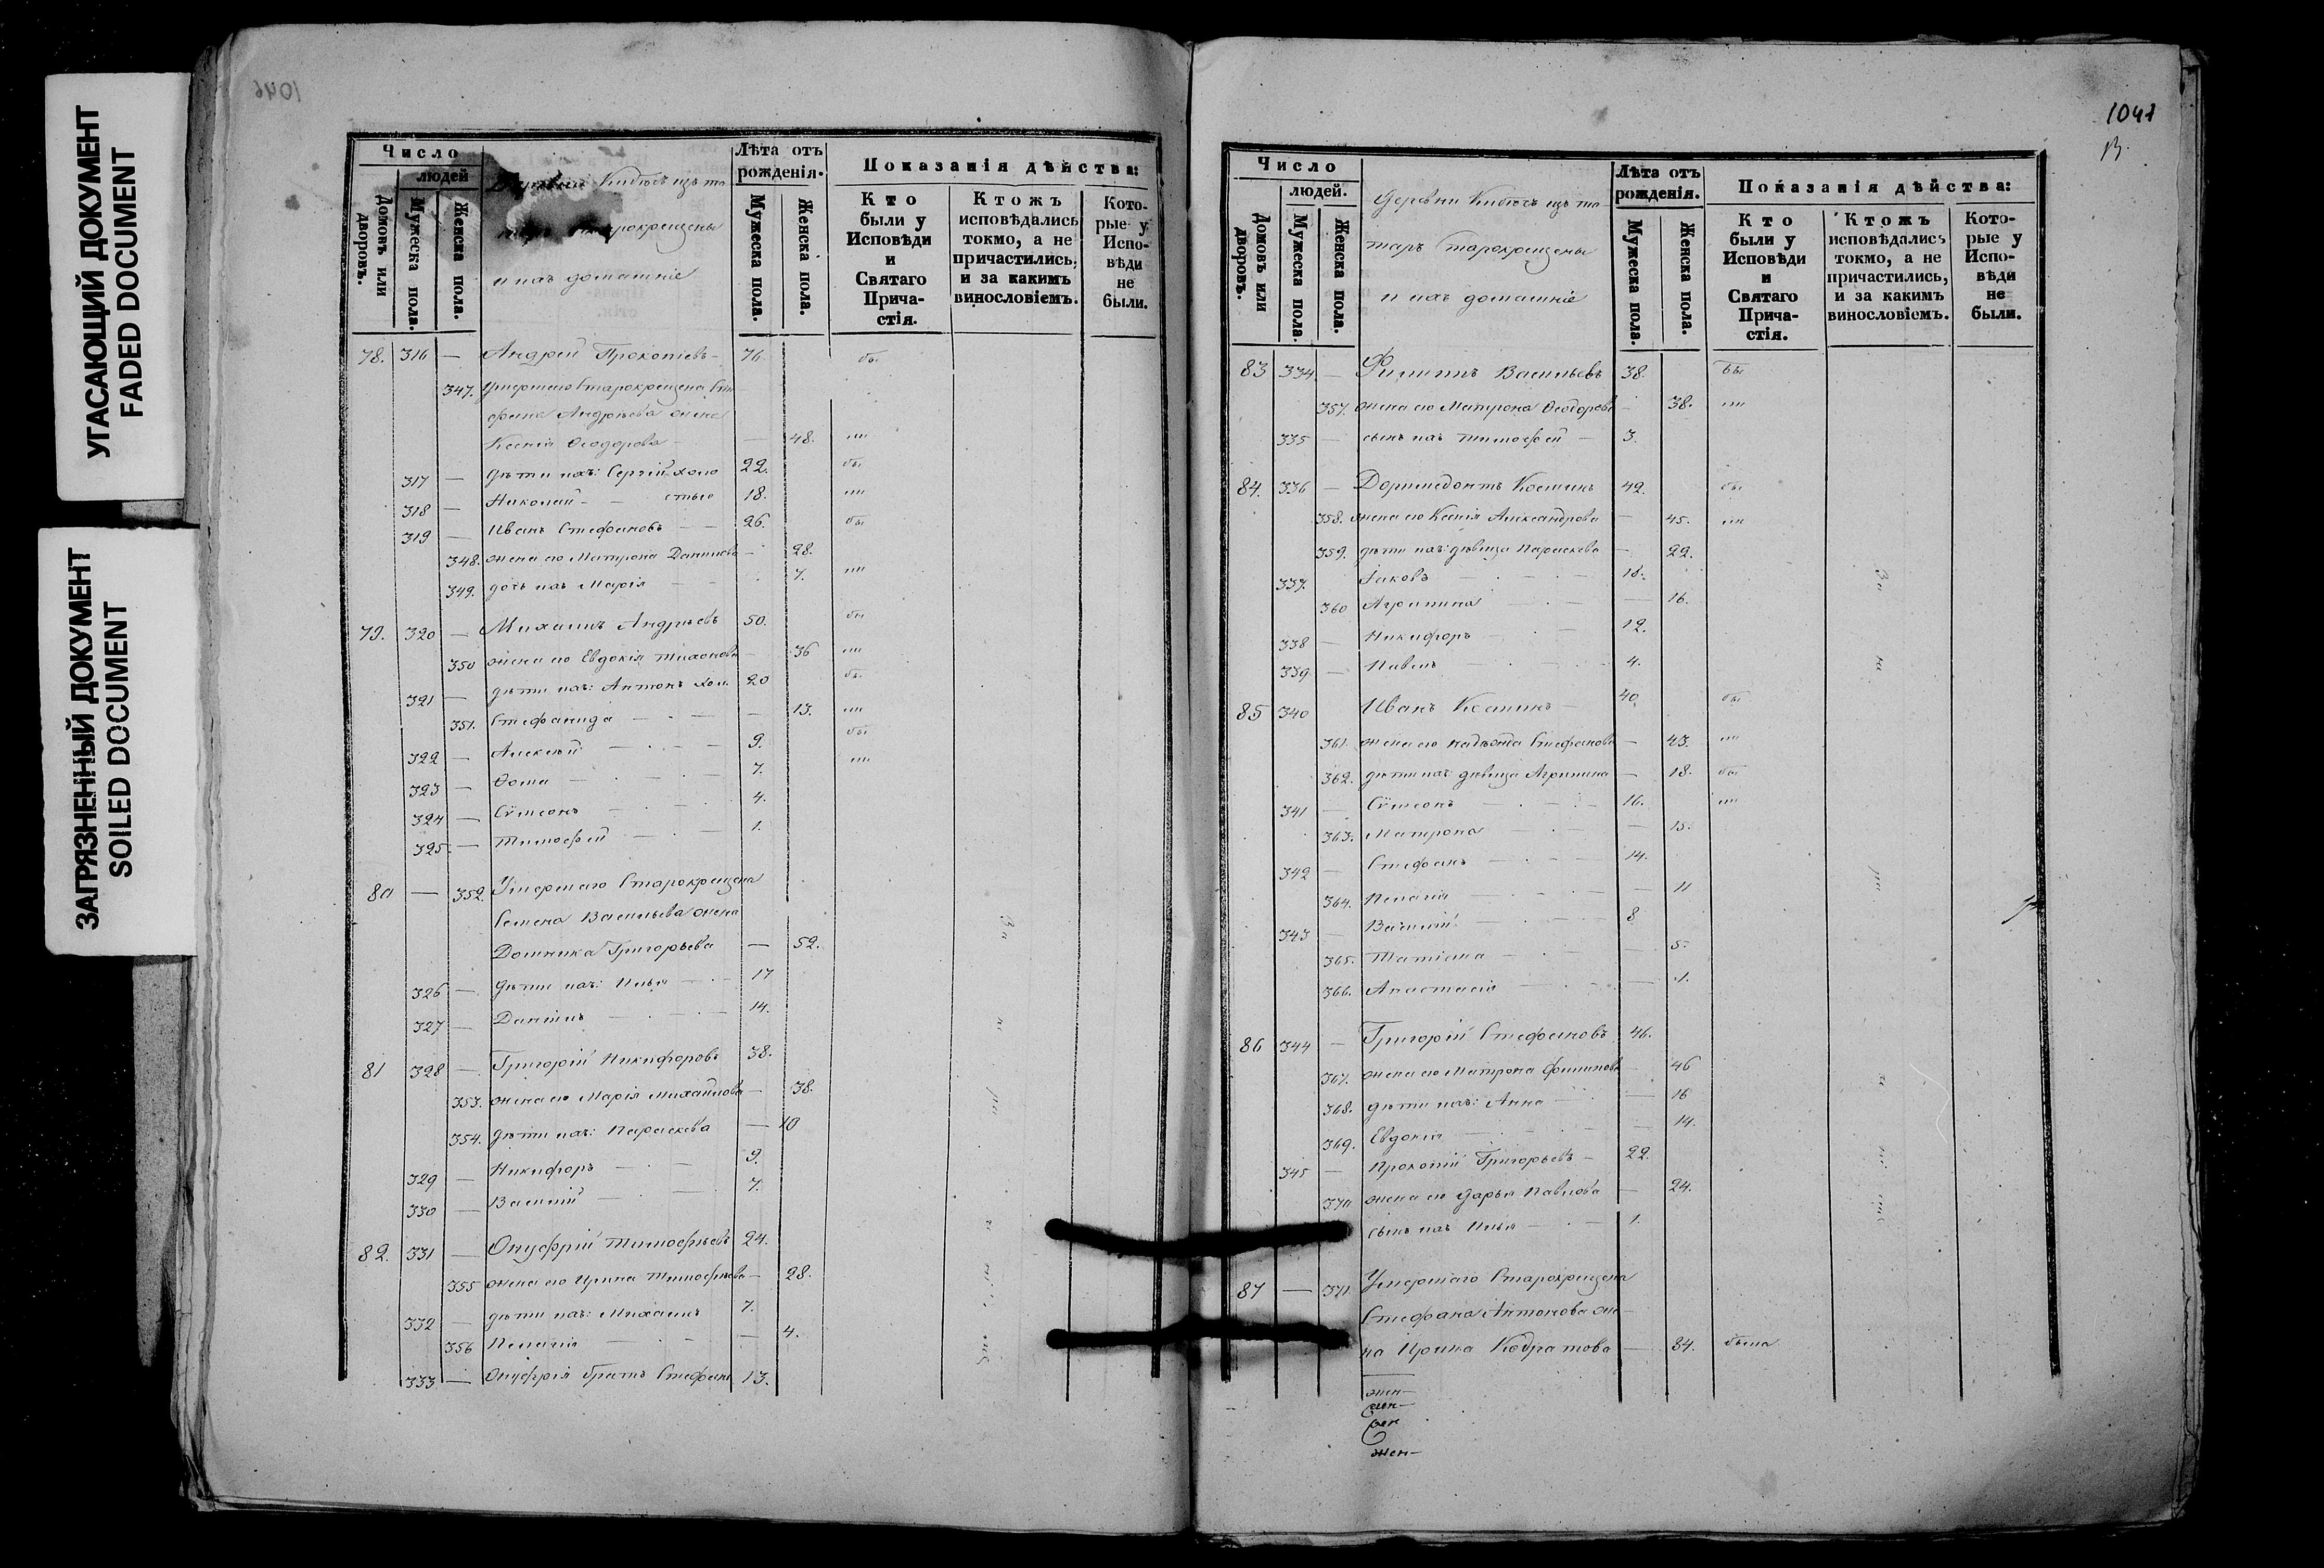 УГАСАЮЩИЙ ДОКУМЕНТ
FADED DOCUMENT
ЗАГРЯЗНЕННЫЙ ДОКУМЕНТ
SOILED DOCUMENT
1046
Число
людей
Домовъ или дворовъ.
Мужеска пола.
Женска пола.
Деревни изъ та
таръ старокрещены
и ихъ домашніе
Лѣта отъ рожденія.
Мужеска пола.
Женска пола.
Показанія дѣйства:
Кто были у Исповѣди и Святаго Прича- стія.
Ктожъ исповѣдались токмо, а не причастились, и за какимъ винословіемъ.
Кото- рые у Испо- вѣди не были.
78. 316 — Андрей Прокопіевъ — 76. бы
347. Умершаго Старокрещена Сте
фана Андрѣева жена
Ксенія Ѳеодорова — — 48.
317 — дѣти ихъ: Сергій холо 22. бы
318 — Николай — — стые 18.
319 — Иванъ Стефановъ — — 26. бы
348. жена его Матрона Данилова — 28.
349. дочь ихъ Марія — — 7.
79. 320 — Михаилъ Андрѣевъ 50. бы
350 жена его Евдокія Тихонова — 36
321 — дѣти ихъ: Антонъ хол. 20 бы
351. Стефанида — — 13.
322 — Алексѣй — — 9. бы
323 — Ѳома — — 7.
324 — Сѵмеонъ — — 4.
325. — Тимоѳей — — 1.
80 — 352. Умершаго Старокрещена
Семена Васильева жена
Домника Григорьева — 52.
326 — дѣти ихъ: Илья — — 17
327 — Даніилъ — — 14.
81 328 — Григорій Никифоровъ 38.
353. жена его Марія Михайлова — 38.
354. дѣти ихъ: Параскева — 10
329 — Никифоръ — — 9.
330 — Василій — — 7.
82. 331 — Онуфрій Тимоѳѣевъ 24.
355 жена его Ирина Тимоѳѣева — 28.
332 — дѣти ихъ: Михаилъ 7.
356 Пелагія — — 4.
333 — Онуфрія братъ Стефанъ 13.
1047
Число
людей.
Домовъ или дворовъ.
Мужеска пола.
Женска пола.
Деревни изъ та
таръ старокрещены
и ихъ домашніе
Лѣта отъ рожденія.
Мужеска пола.
Женска пола.
Показанія дѣйства:
Кто были у Исповѣди и Святаго Прича- стія.
Ктожъ исповѣдались токмо, а не причастились, и за какимъ винословіемъ.
Кото- рые у Испо- вѣди не были.
83 334 — Филиппъ Васильевъ 38. бы
357. жена его Матрона Ѳеодорова — 38.
335 — сынъ ихъ Тимоѳей — 3.
84. 336 — Доримедонтъ Косминъ 42. бы
358. жена его Ксенія Александрова — 45.
359. дѣти ихъ: дѣвица Параскева — 22.
337. Іаковъ — — 18.
360 Агрипина — — 16.
338 — Никифоръ — — 12.
339 — Павелъ — — 4.
85 340 Иванъ Косминъ — 40 бы
361. жена его Надежда Стефанова — 43.
362. дѣти ихъ: дѣвица Агрипина — 18. бы
341 — Сѵмеонъ — — 16.
363. Матрона — — 15.
342 — Стефанъ — — 14.
364. Пелагія — — 11
343 — Василій — — 8
365. Татіана — — 5.
366. Анастасія — — 1.
86 344 — Григорій Стефановъ 46.
367. жена его Матрона Филипова — 46
368. дѣти ихъ: Анна — — 16
369. Евдокія — — 14.
345 — Прокопій Григорьевъ — 22.
370 жена его Дарья Павлова — 24.
сынъ ихъ Илья — — 1.
87 — 371. Умершаго Старокрещена
Стефана Антонова же-
на Ирина Кодратова — 84. была
жен—
жен—